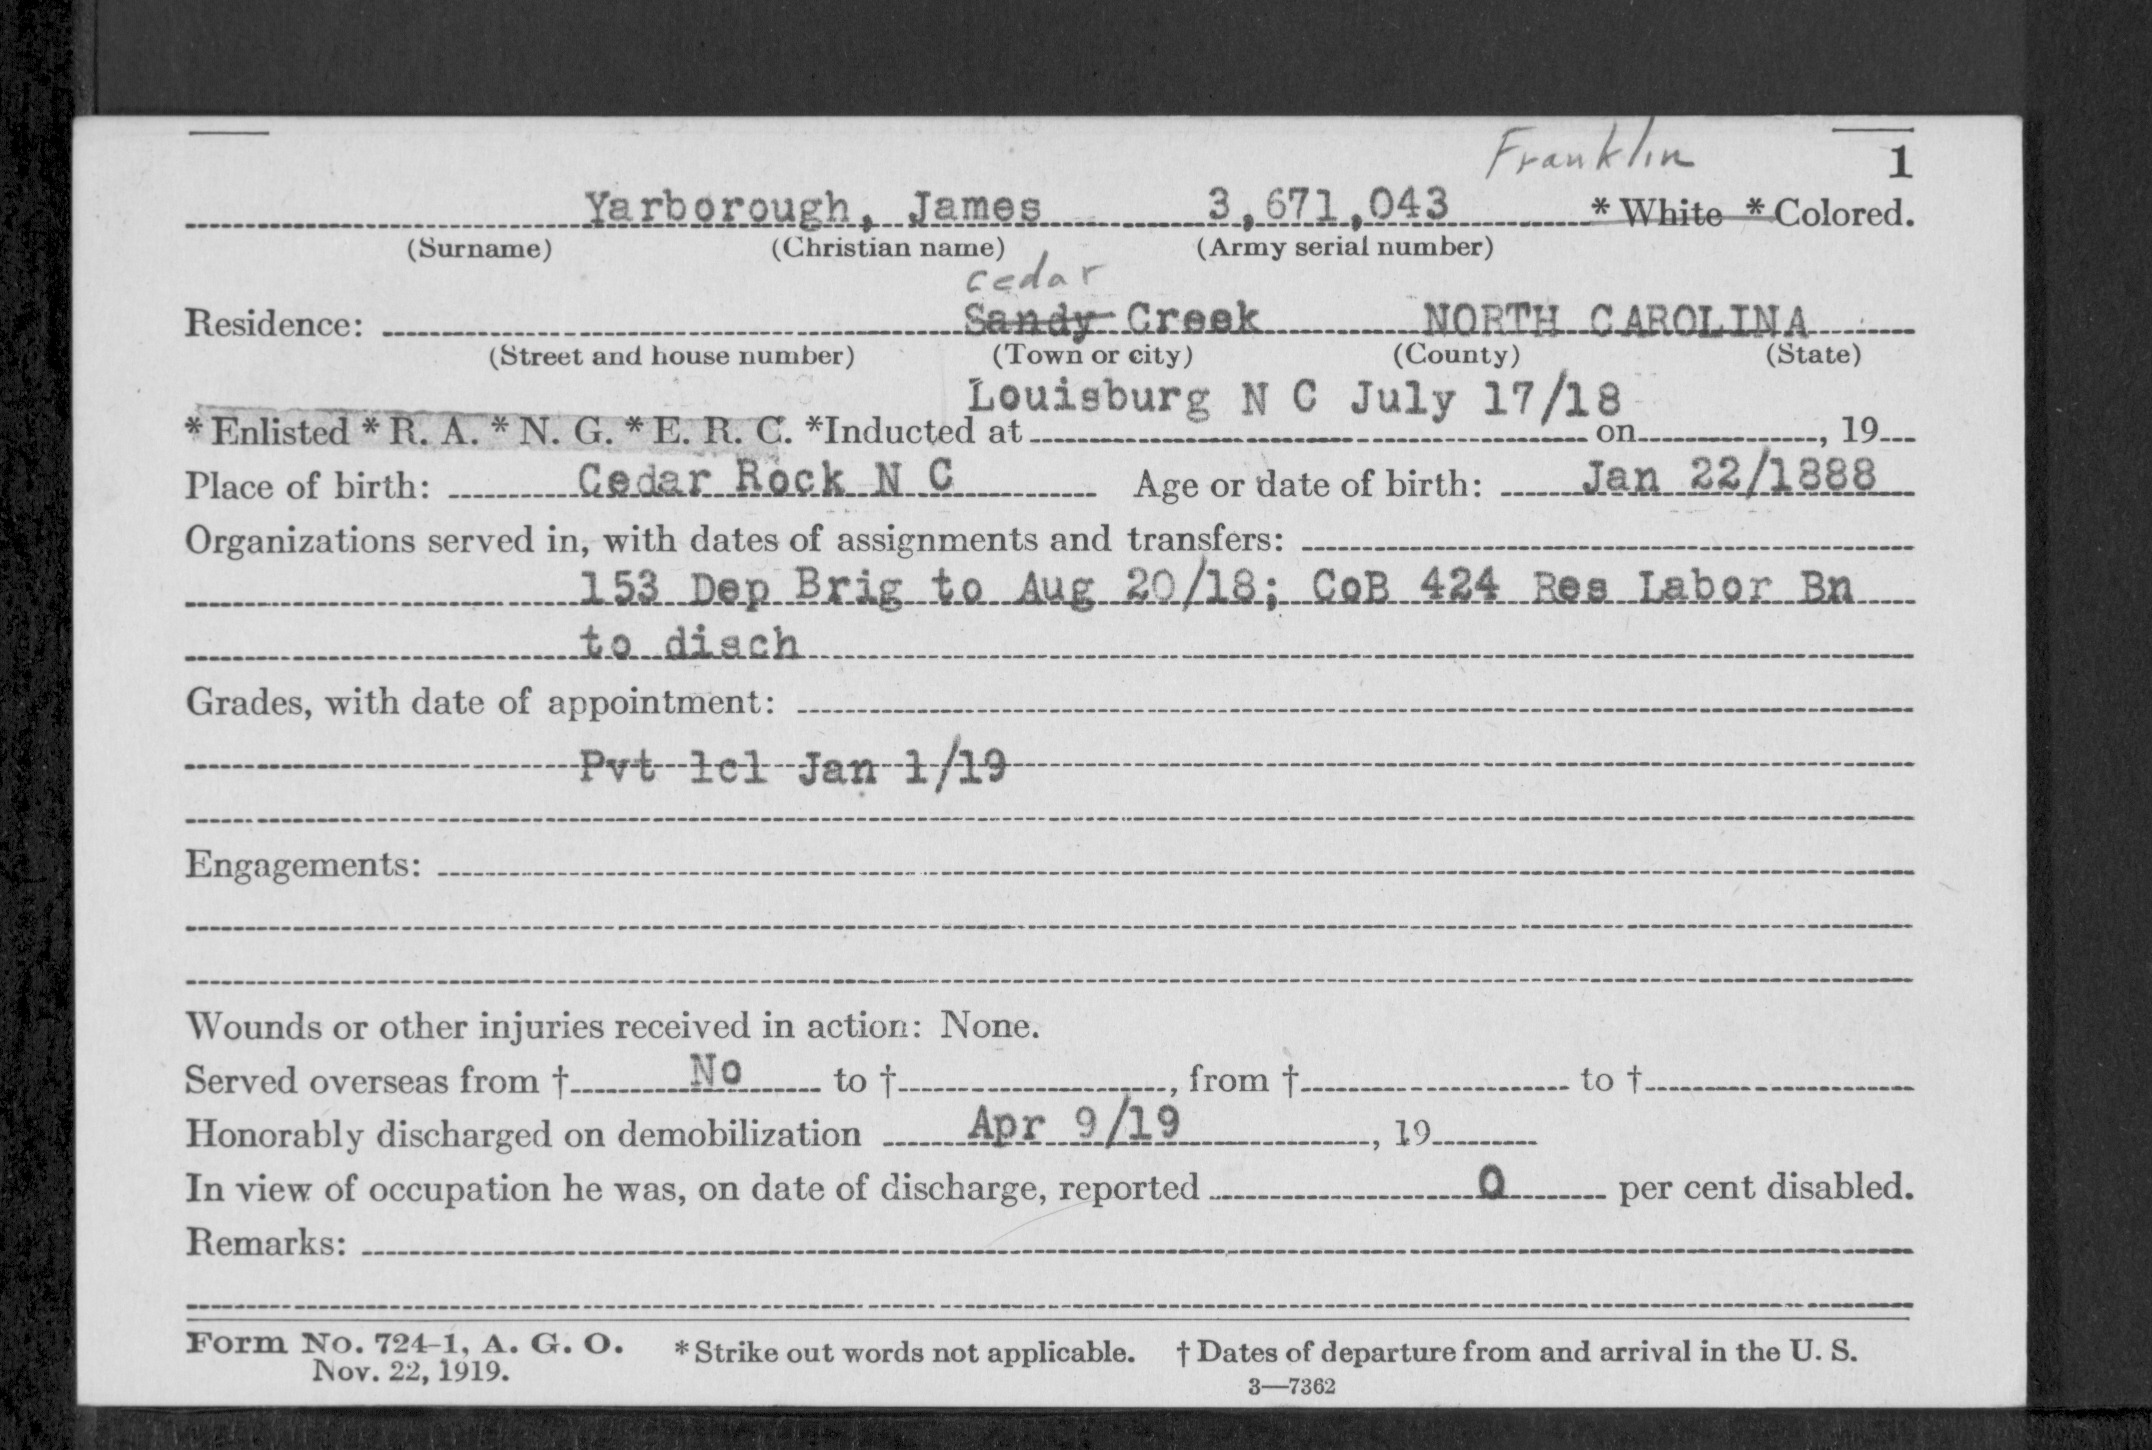 Franklin
1
Yarborough, James 3,671,043 * White * Colored.
(Surname) (Christian name) (Army serial number)
cedar
Residence: Sandy Creek NORTH CAROLINA
(Street and house number) (Town or city) (County) (State)
Louisburg N C July 17/18
* Enlisted * R. A. * N. G. * E. R. C. *Inducted at on , 19
Place of birth: Cedar Rock N C Age or date of birth: Jan 22/1888
Organizations served in, with dates of assignments and transfers:
153 Dep Brig to Aug 20/18; CoB 424 Res Labor Bn
to disch
Grades, with date of appointment:
Pvt 1cl Jan 1/19
Engagements:
Wounds or other injuries received in action: None.
Served overseas from † No to † , from † to †
Honorably discharged on demobilization Apr 9/19 , 19
In view of occupation he was, on date of discharge, reported 0 per cent disabled.
Remarks:
Form No. 724-1, A. G. O. * Strike out words not applicable. † Dates of departure from and arrival in the U. S.
Nov. 22, 1919.
3—7362